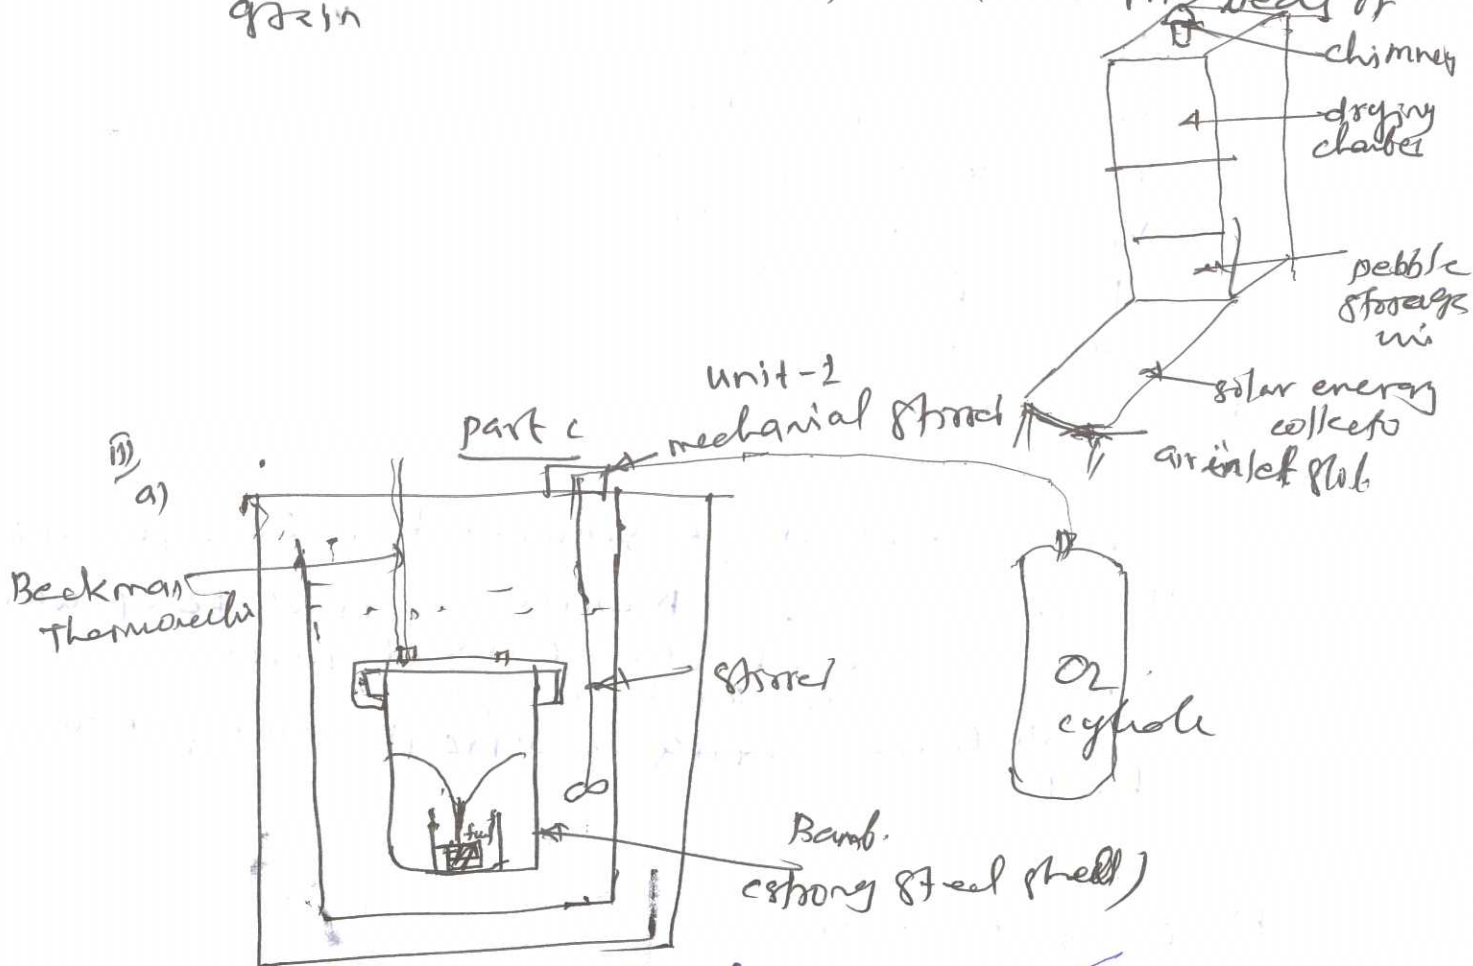 grain
chimney
drying
chamber
pebble
storage
solar energy
air inlet slot
unit-1
part c
mechanial stirrer
a)
Beckman
Thermometer
stirrer
O2
cylinde
fuel
Bomb.
(strong steel shell)